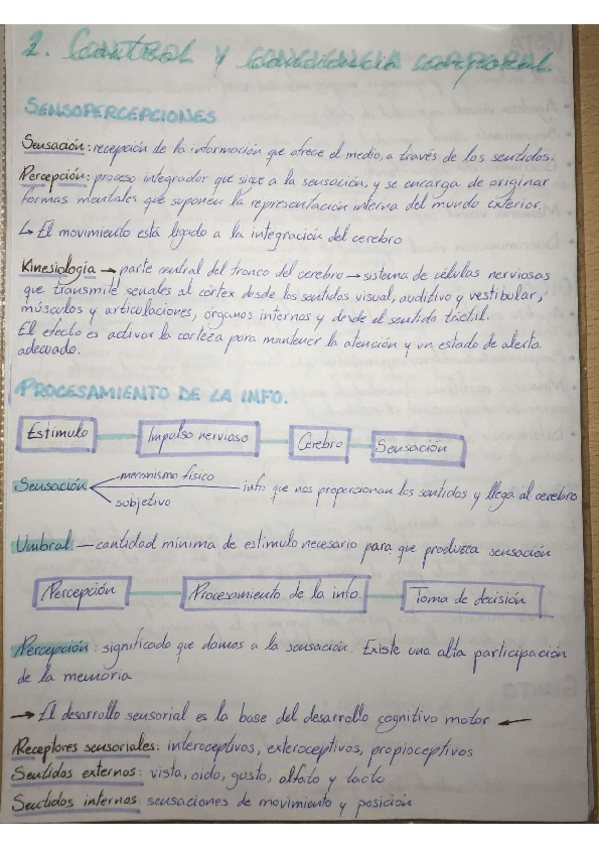 2. Control y conciencia corporal
SENSOPERCEPCIONES
Sensación: recepción de la información que ofrece el medio, a través de los sentidos.
Percepción: proceso integrador que sigue a la sensación, y se encarga de originar
formas mentales que suponen la representación interna del mundo exterior.
↳ El movimiento está ligado a la integración del cerebro
Kinesiología → parte central del tronco del cerebro → sistema de células nerviosas
que transmite señales al córtex desde los sentidos visual, auditivo y vestibular,
músculos y articulaciones, órganos internos y desde el sentido táctil.
El efecto es activar la corteza para mantener la atención y un estado de alerta
adecuado.
PROCESAMIENTO DE LA INFO.
Estímulo — Impulso nervioso — Cerebro — Sensación
mecanismo físico
Sensación < info que nos proporcionan los sentidos y llega al cerebro
subjetivo
Umbral — cantidad mínima de estímulo necesario para que produzca sensación
Percepción — Procesamiento de la info — Toma de decisión
Percepción: significado que damos a la sensación. Existe una alta participación
de la memoria
→ El desarrollo sensorial es la base del desarrollo cognitivo motor ←
Receptores sensoriales: interoceptivos, exteroceptivos, propioceptivos
Sentidos externos: vista, oido, gusto, olfato y tacto
Sentidos internos sensaciones de movimiento y posición